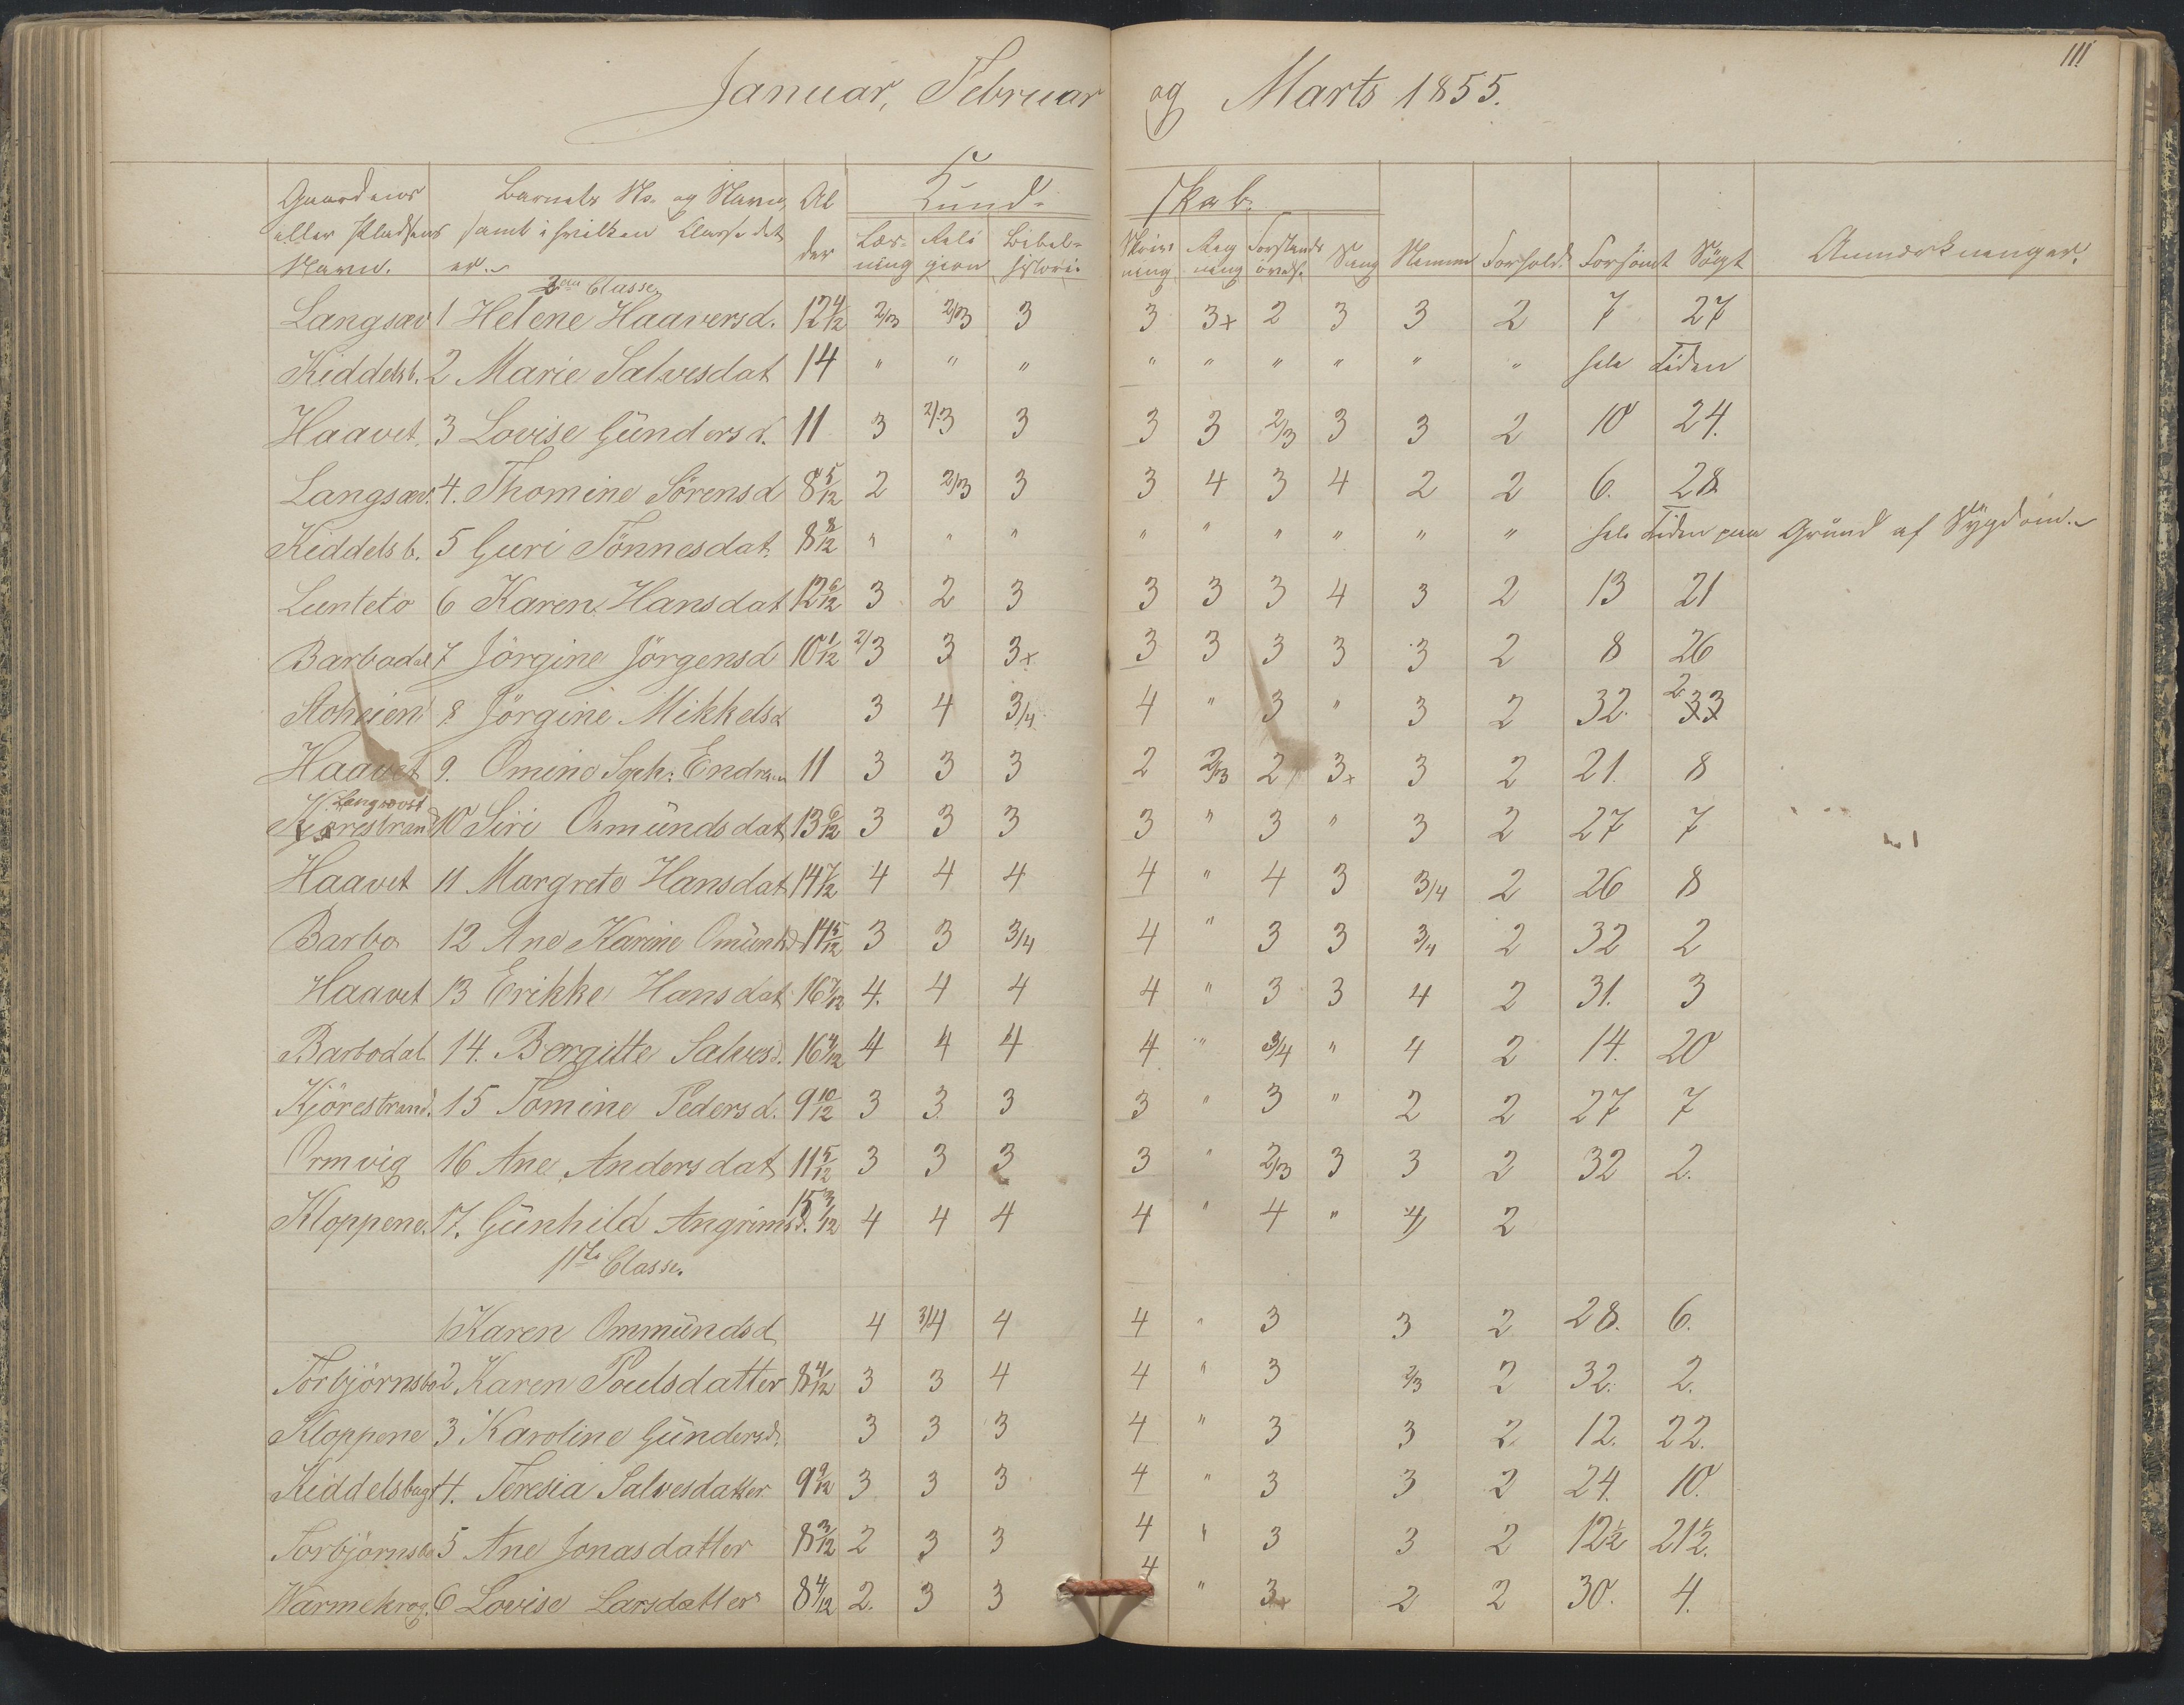 111
Januar, Februar og Marts 1855.
Gaardens eller Pladsens Navn. Barnets No. og Navn, samt i hvilken Classe det er. Alder Kundskab. Læsning Religion Bibelhistorie Skrivning Regning Forstandsøvels. Sang Nemme Forhold. Forsömt Sögt Anmærkninger.
2den Classe
Langsæv 1 Helene Haaversd. 12 4/12 2/3 2/3 3 3 3+ 2 3 3 2 7 27
Kiddelsb. 2 Marie Salvesdat 14 " " " " " " " " " hele Tiden
Haavet 3 Lovise Gündersd. 11 3 2/3 3 3 3 2/3 3 3 2 10 24.
Langsæv. 4. Thomine Sørensd 8 5/12 2 2/3 3 3 4 3 4 2 2 6. 28
Kiddelsb. 5 Guri Tönnesdat 8 8/12 " " " " " " " " " hele Tiden paa Grund af Sygdom.
Lunteto 6 Karen Hansdat 12 6/12 3 2 3 3 3 3 4 3 2 13 21
Barbodal 7 Jörgine Jörgensd 10 1/12 2/3 3 3+ 3 3 3 3 3 2 8 26
Stoheien 8 Jörgine Mikkelsd 3 4 3/4 4 " 3 " 3 2 32. 2 33
Haavet 9. Omine Soph: Endres 11 3 3 3 2 2/3 2 3+ 3 2 21. 8
Langsævst
Kjörestrand 10 Siri Osmündsdat 13 6/12 3 3 3 3 " 3 " 3 2 27 7
Haavet 11 Margrete Hansdat 14 7/12 4 4 4 4 " 4 3 3/4 2 26 8
Barbo 12 Ane Karine Omünds 14 5/12 3 3 3/4 4 " 3 3 3/4 2 32 2
Haavet 13 Erikke Hansdat 16 7/12 4. 4 4 4 " 3 3 4 2 31. 3
Barbodal 14. Borgitte Salvesd. 16 4/12 4 4 4 4 " 3/4 " 4 2 14. 20
Kjörestrand. 15 Tomine Pedersd. 9 10/12 3 3 3 3 " 3 " 2 2 27 7
Ormvig 16 Ane Andersdat 11 5/12 3 3 3 3 " 2/3 3 3 2 32 2.
Kloppene. 17. Günhild Angrimsd. 15 3/12 4 4 4 4 " 4 " 4 2
1ste Classe.
1 Karen Ommündsd 4 3/4 4 4 " 3 3 2 28. 6.
Torbjörnsbo 2 Karen Poulsdatter 8 4/12 3 3 4 4 " 3 2/3 2 32. 2.
Kloppene 3 Karoline Gündersd. 3 3 3 4 " 3 3 2. 12. 22.
Kiddelsbugt 4. Teresia Salvesdatter 9 9/12 3 3 3 4 " 3 3 2 24. 10.
Torbjörnsbo 5 Ane Jonasdatter 8 3/12 2 3 3 4 " 3 3 2 12 1/2 21 1/2.
Warmekrog. 6 Lovise Larsdatter 8 4/12 2. 3 3 4 " 3+ 2 2 30. 4.